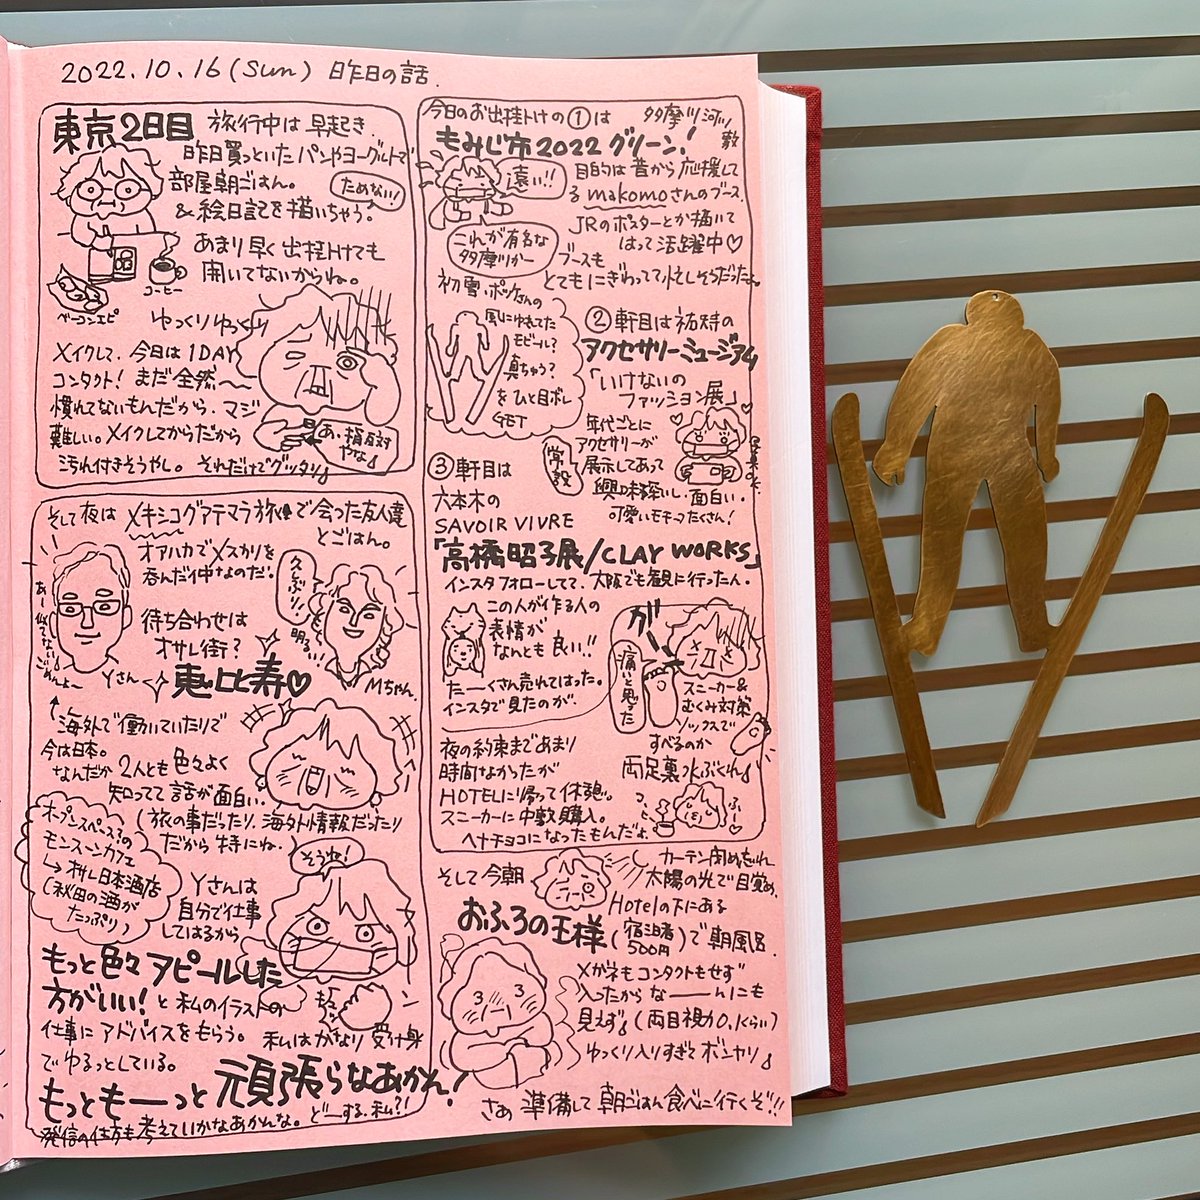 2022.10.16(Sun) 昨日の話.
東京2日目 旅行中は早起き.
昨日買っといたパンやヨーグルトで
部屋朝ごはん。
ためない!
&絵日記を描いちゃう。
あまり早く出掛けても
開いてないからね。
コーヒー
ベーコンエピ
ゆっくりゆっくり
メイクして、今日は1DAY
コンタクト! まだ全然〜〜
慣れてないもんだから、マジ
難しい。メイクしてからだから
汚れ付きそうやし。それだけでグッタリ
あ、指反対やな
そして夜はメキシコグアテマラ旅中で会った友人達
とごはん。
オアハカでメスカリを
呑んだ仲なのだ。
久しぶり!!
明るい
待ち合わせは
オサレ街?
恵比寿♡
あー似てない
ごめんよ〜
Yさん
Mちゃん
↑海外で働いていたりで
今は日本。
なんだか2人とも色々よく
知ってて話が面白い.
(旅の事だったり、海外情報だったり
だから特にね.
オープンスペースの
モンスーンカフェ
↳オサレ日本酒店
(秋田の酒が
たっぷり)
そうね!
Yさんは
自分で仕事
してはるから
もっと色々アピールした
方がいい! と私のイラストの
仕事にアドバイスをもらう。私はかなり受け身
でゆるっとしている。
もっともーっと頑張らなあかん!
発信の仕方も考えていかなあかんな。どーする、私?!
今日のお出掛けの①は 多摩川河川敷
もみじ市2022 グリーン!
遠い!!
目的は昔から応援して
る makomoさんのブース.
JRのポスターとか描いて
はって活躍中♡
これが有名な
多摩川かー
ブースも
とてもにぎわってて忙しそうだったよ
初雪・ポッケさんの
風にゆれてた
モビール?
真ちゅう?
をひと目ボレ
GET
②軒目は祐天寺の
アクセサリーミュージアム
「いけないの
ファッション展」
年代ごとに
アクセサリーが
展示してあって
興味深いし、面白い.
可愛いモチーフたくさん!
常設
③軒目は
六本木の
SAVOIR VIVRE
「高橋昭子展/CLAY WORKS」
インスタフォローしてて、大阪でも観に行った人.
この人が作る人の
表情が
なんとも良い!!
たーくさん売れてはった。
インスタで見たのが、
ガーン
痛いと思った
スニーカー&
むくみ対策
ソックスで
すべるのか
両足裏水ぶくれ
夜の約束まであまり
時間なかったが
HOTELに帰って休憩。
スニーカーに中敷購入。
ヘナチョコになったもんだよ.
そして今朝
カーテン閉め忘れ
太陽の光で目覚め.
Hotelの下にある
おふろの王様(宿泊者500円)で朝風呂.
メガネもコンタクトもせず
入ったからなーーんにも
見えず (両目視力0.1くらい)
ゆっくり入りすぎてボンヤリ
さぁ準備して朝ごはん食べに行くぞ!!